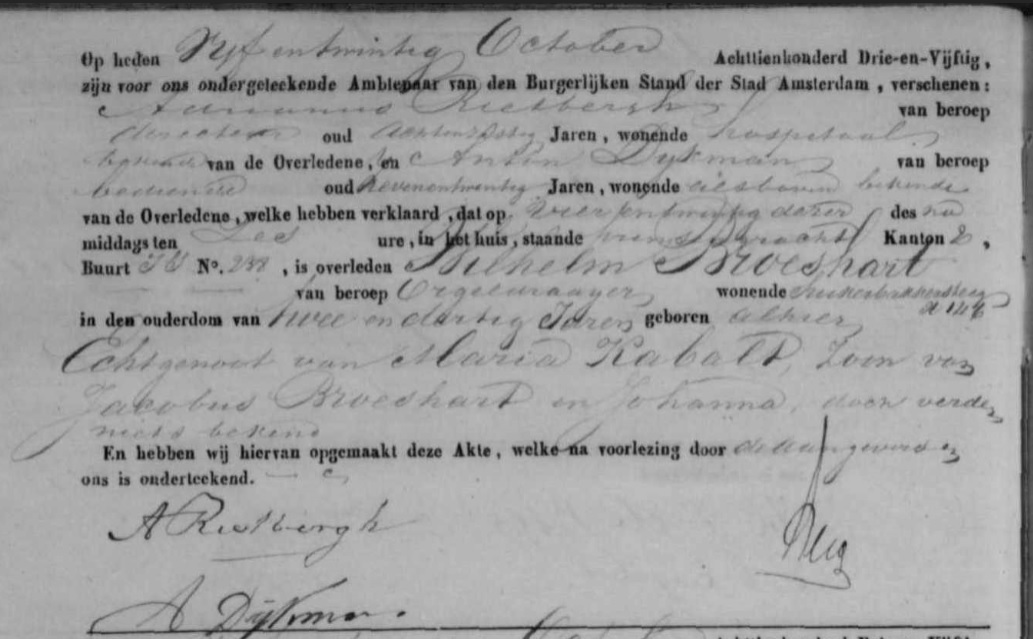 Op heden Vijf entwintig October Achttienhonderd Drie-en-Vijftig,
zijn voor ons ondergeteekende Ambtenaar van den Burgerlijken Stand der Stad Amsterdam, verschenen:
Adrianus Rietbergh van beroep
directeur oud Jaren, wonende hospitaal
bekende van de Overledene, en Anton Dykman van beroep
bediende oud Zevenentwintig Jaren, wonende bekende
van de Overledene, welke hebben verklaard, dat op Vier entwintig dezer des na
middags ten Zes ure, in het huis, staande prinsegracht Kanton 2,
Buurt No. 238, is overleden Wilhelm Broeshart
van beroep Orgeldraayer wonende Suikerbakkersteeg
in den ouderdom van twee en dertig Jaren geboren alhier,
Echtgenoot van Maria Kabalt, Zoon van
Jacobus Broeshart en Johanna, doch verder
niets bekend
En hebben wij hiervan opgemaakt deze Akte, welke na voorlezing door de aangevers en
ons is onderteekend.
A Rietbergh
A Dijkman.